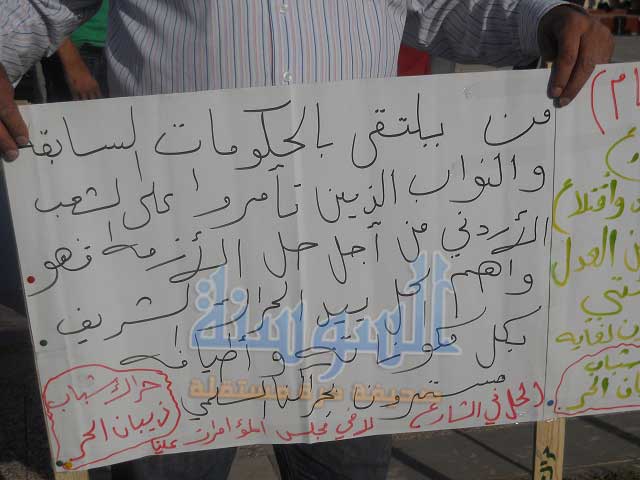 من يلتقى بالحكومات لسابقه
والنواب الذين تأمروا على لشعب
الأردني من أجل حل الأزمه فهو.
واهم الحل بيد الحراك لشريف.
بكل مكوناته وأطيافه
مستمرون بحراكنا السلمي
الحل في الشارع لا في مجلس المؤامرات علينا
حراك شباب
ذيبان الحر
السوسنة
صحيفة حرة مستقلة
ام)
واقتلاع
العدل
لغايه
شباب
ان الحر